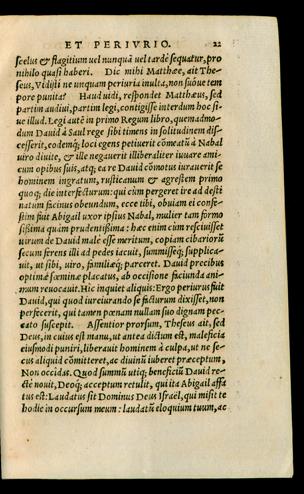 ET PERIVRIO. 22
scelus & flagitium uel nunquã uel tardè sequatur, pro
nihilo quasi haberi. Dic mihi Matthæe, ait The
seus, Vidisti ne unquam periuria inulta, non suóue tem
pore punita? Haud uidi, respõdet Matthæus, sed
partim audiui, partim legi, contigisse interdum hoc si-
ue illud. Legi autẽ in primo Regum libro, quemadmo-
dum Dauid à Saul rege sibi timens in solitudinem dis-
cesserit, eodemq́; loci egens petiuerit cõmeatũ à Nabal
uiro diuite, & ille negauerit illiberaliter iuuare ami-
cum opibus suis, atq; ea re Dauid cõmotus iurauerit se
hominem ingratum, rusticanum & agrestem primo
quoq; die interfecturum: qui cùm pergeret ire ad desti
natum facinus obeundum, ecce tibi, obuiam ei confe-
stim fuit Abigail uxor ipsius Nabal, mulier tam formo
sissima quàm prudentissima: hæc enim cùm resciuisset
uirum de Dauid malè esse meritum, copiam cibariorũ
secum ferens illi ad pedes iacuit, summisseq́; supplica-
uit, ut sibi, uiro, familiæq́; parceret. Dauid precibus
optimæ fœminæ placatus, ab occisione facienda ani-
mum reuocauit. Hic inquiet aliquis: Ergo periurus fuit
Dauid, qui quod iureiurando se facturum dixisset, non
perfecerit, qui tamen pœnam nullam suo dignam pec-
cato suscepit. Assentior prorsum, Theseus ait, sed
Deus, in cuius est manu, ut antea dictum est, maleficia
eiusmodi puniri, liberauit hominem à culpa, ut ne se-
cus aliquid cõmitteret, ac diuinũ iuberet præceptum,
Non occidas. Quod summũ utiq; beneficiũ Dauid re-
ctè nouit, Deoq́; acceptum retulit, qui ita Abigail affa
tus est: Laudatus sit Dominus Deus Israël, qui misit te
hodie in occursum meum: laudatũ eloquium tuum, ac